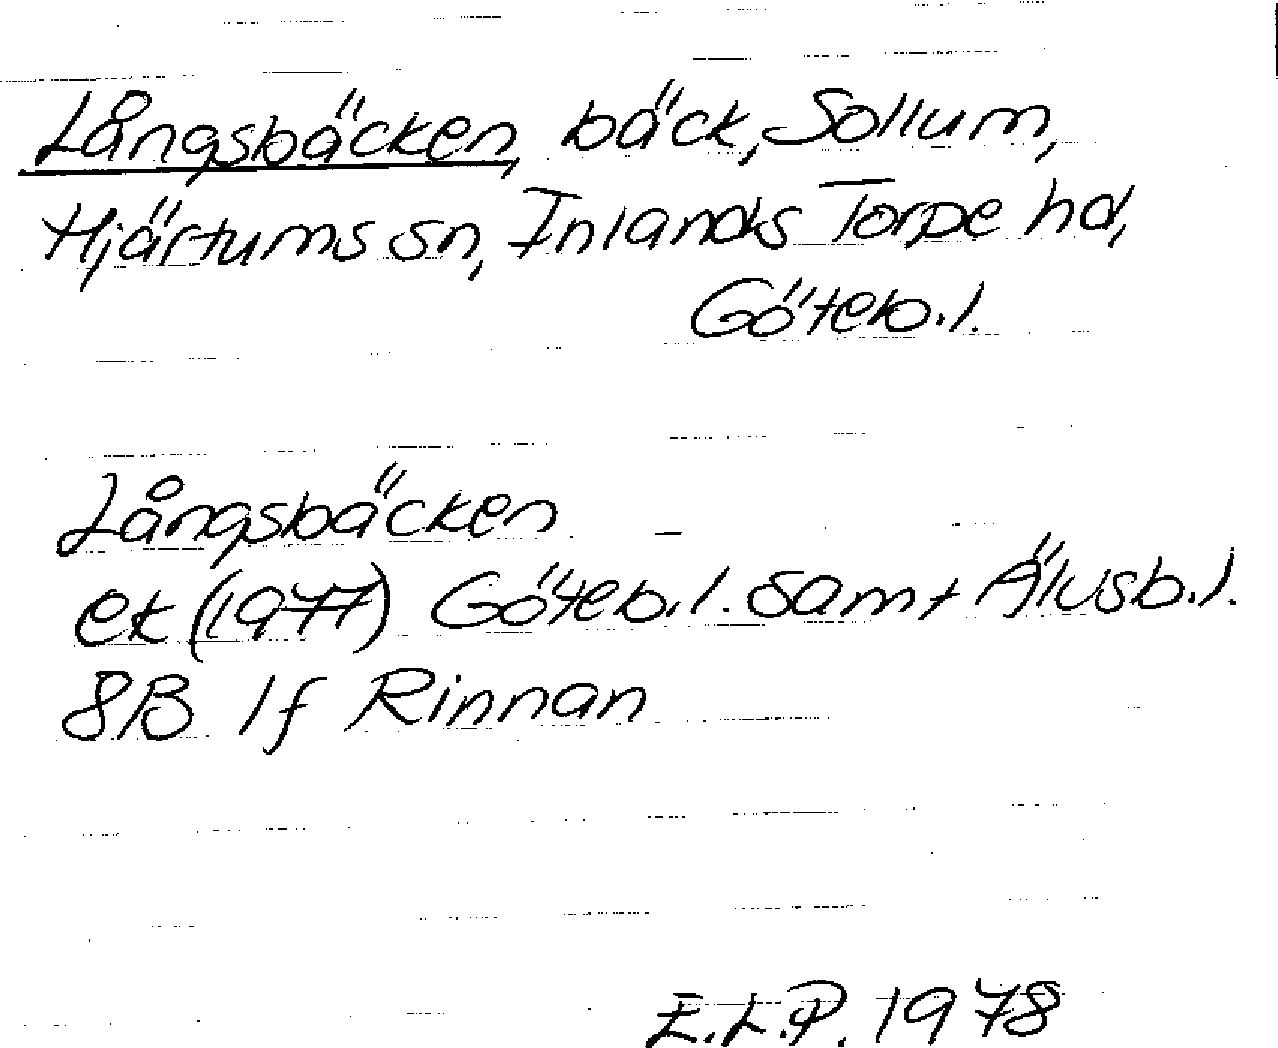 Långsbäcken, bäck, Sollum,
Hjärtums sn, Inlands Torpe hd,
Göteb.l.
Långsbäcken
ek (1977) Göteb.l. samt Älvsb.l.
8B 1f Rinnan
E.L.P. 1978